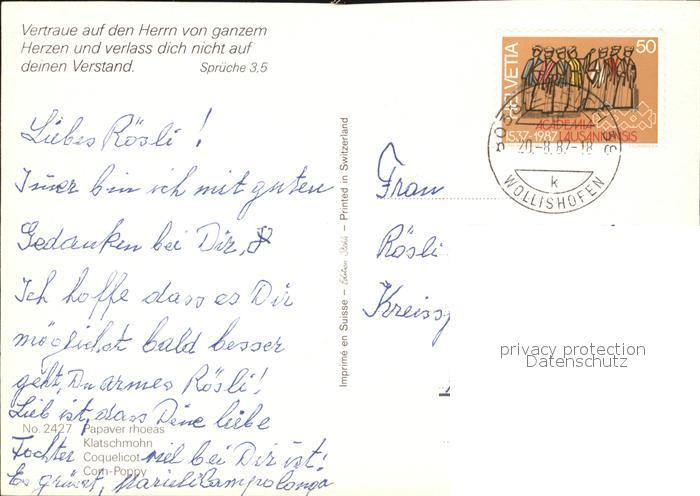 Vertraue auf den Herrn von ganzem
Herzen und verlass dich nicht auf
deinen Verstand. Sprüche 3,5
Liebes Rösli!
Imer bin ich mit guten
Gedanken bei Dir,
Ich hoffe dass es Dir
möglichst bald besser
geht, Du armes Rösli!,
Lieb ist, dass Deine liebe
Tochter viel bei Dir ist!
Es grüsst, Marieli Campolongo
No. 2427 Papaver rhoeas
Klatschmohn
Coquelicot
Corn-Poppy
Imprimé en Suisse – Edition Stehli – Printed in Switzerland
HELVETIA 50
ACADEMIA
1537-1987 LAUSANNENSIS
20.-8.87-18
k
WOLLISHOFEN
Frau
Rösli
privacy protection
Datenschutz